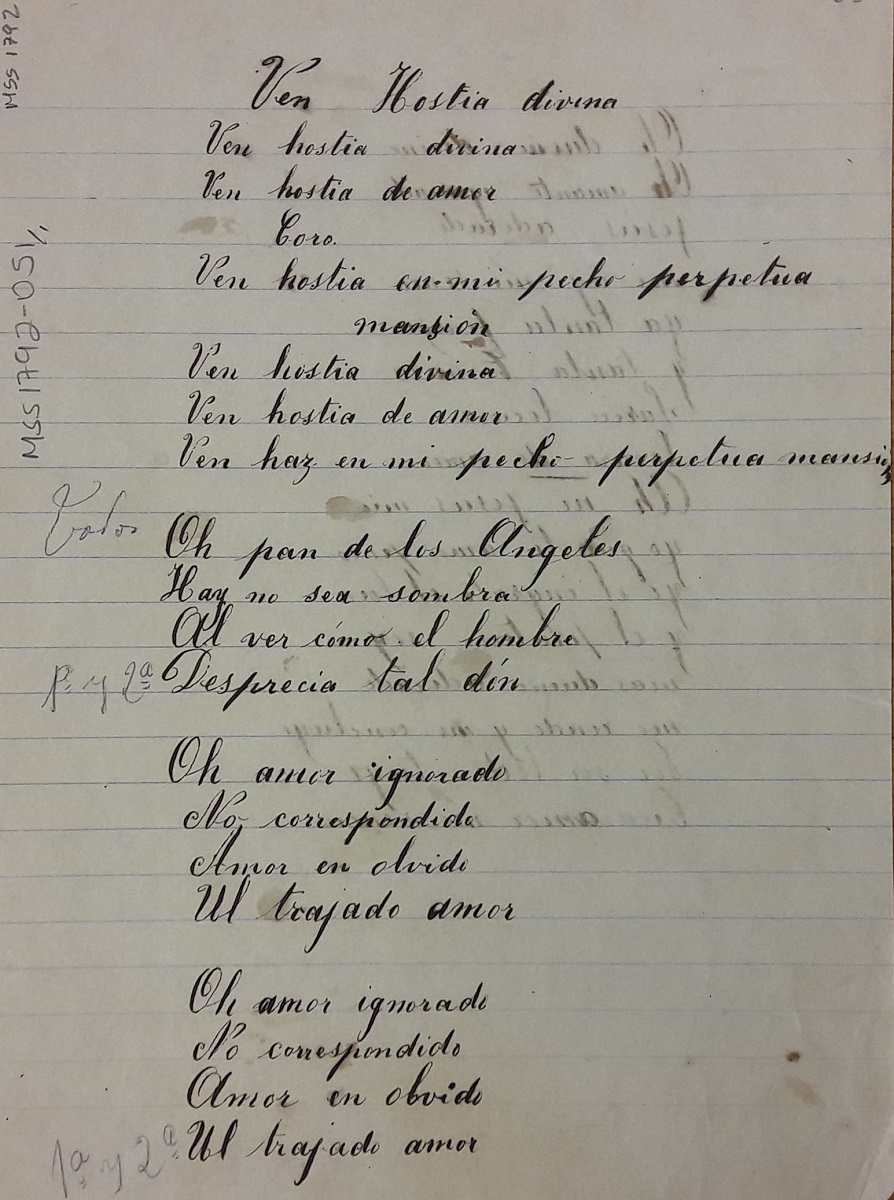 MSS 1792
MSS 1792-051/1
Ven Hostia divina
Ven hostia divina
Ven hostia de amor
Coro.
Ven hostia en mi pecho perpetua
mansión
Ven hostia divina
Ven hostia de amor
Ven haz en mi pecho perpetua mansi
Todos
Oh pan de los Angeles
Hay no sea sombra
Al ver cómo el hombre
1ª y 2ª Desprecia tal dón
Oh amor ignorado
No correspondido
Amor en olvido
Ul trajado amor
Oh amor ignorado
No correspondido
Amor en olvido
1ª y 2ª Ul trajado amor